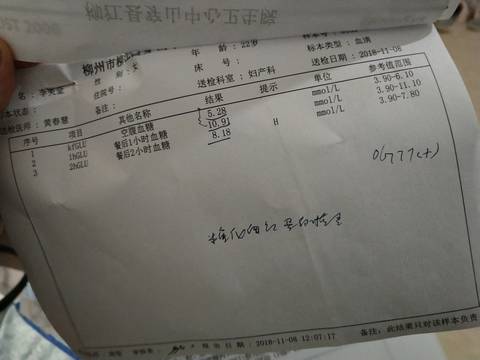 柳州市柳
年 龄：22岁
标本类型：血清
性 别：女
床 号：
送检日期：2018-11-08
住院号：
送检科室：妇产科
标本状态：
送检医师：黄春慧
备注：
序号 项目 其他名称 结果 提示 单位 参考值范围
1 kfGLU 空腹血糖 5.28 mmol/L 3.90-6.10
2 1hGLU 餐后1小时血糖 10.91 H mmol/L 3.90-11.10
3 2hGLU 餐后2小时血糖 8.18 mmol/L 3.90-7.80
OGTT(+)
报告日期：2018-11-08 12:07:17
备注：此结果只对该样本负责